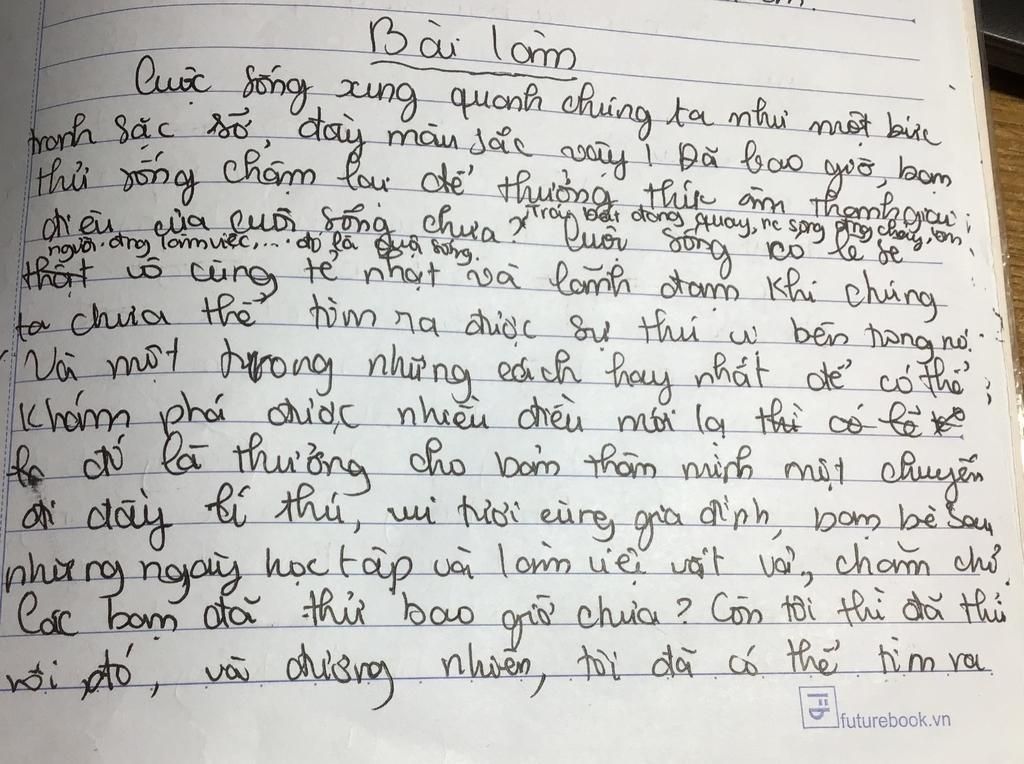 Bài làm
Cuộc sống xung quanh chúng ta như một bức
tranh sặc sỡ, đầy màu sắc vậy! Đã bao giờ, bạn
thử sống chậm lại để thưởng thức âm thanh, giai
điệu của cuộc sống chưa? Cuộc sống có lẽ sẽ
Trái Đất đang quay, sông đang chảy, con
người đang làm việc,... đó là cuộc sống.
thật vô cùng tẻ nhạt và lãnh đạm khi chúng
ta chưa thể tìm ra được sự thú vị bên trong nó.
Và một trong những cách hay nhất để có thể
khám phá được nhiều điều mới lạ thì có lẽ
đó là thưởng cho bản thân mình một chuyến
đi đầy lí thú, vui tươi cùng gia đình, bạn bè sau
những ngày học tập và làm việc vất vả, chăm chỉ.
Các bạn đã thử bao giờ chưa? Còn tôi thì đã thử
rồi đó, và đương nhiên, tôi đã có thể tìm ra
futurebook.vn